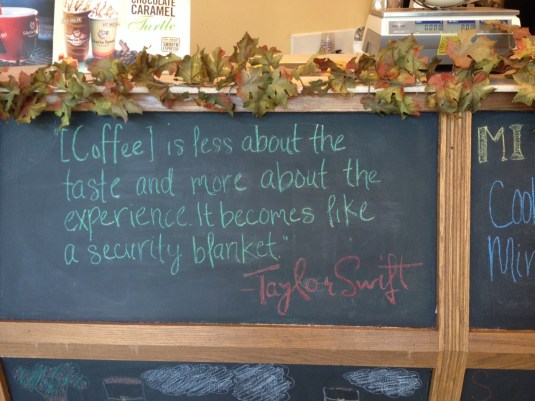 CHOCOLATE
CARAMEL
Turtle
"[Coffee] is less about the
taste and more about the
experience. It becomes like
a security blanket."
-Taylor Swift
MI
Coo
Min